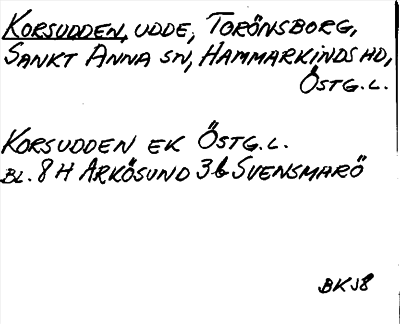 KORSUDDEN, UDDE, TORÖNSBORG,
SANKT ANNA SN, HAMMARKINDS HD,
ÖSTG.L.
KORSUDDEN EK ÖSTG.L.
BL. 8 H ARKÖSUND 3b SVENSMARÖ
BKJ8